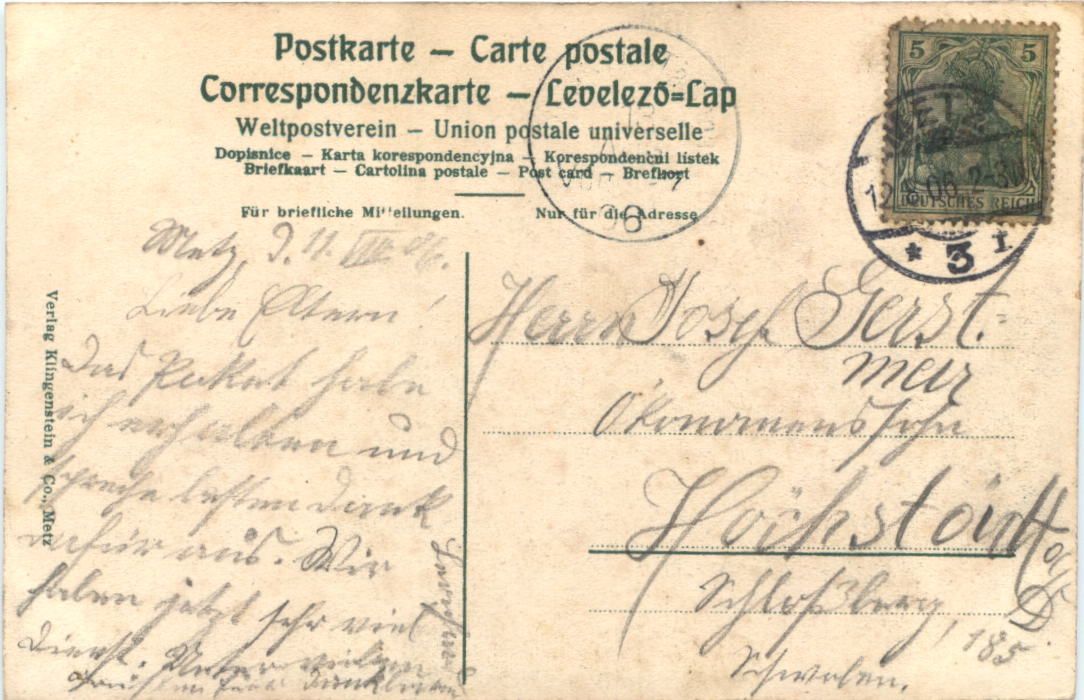 Postkarte – Carte postale
Correspondenzkarte – Levelező=Lap
Weltpostverein – Union postale universelle
Dopisnice – Karta korespondencyjna – Korespondenčni listek
Briefkaart – Cartolina postale – Post card – Brefkort
Für briefliche Mitteilungen. Nur für die Adresse
5 5
DEUTSCHES REICH
METZ
06 2-3N
* 3 I
Verlag Klingenstein & Co., Metz
Metz, d. 11. VIII 06.
Liebe Eltern!
Das Paket habe
ich erhalten und
spreche besten Dank
dafür aus. Wir
haben jetzt sehr viel
Dienst. Unter vielen
Grüßen Euer dankbarer
Herrn Josef Gerst=
meir
Ökonomenssohn
Höchstädt
a/D.
Schloßberg, 185
Schwaben.